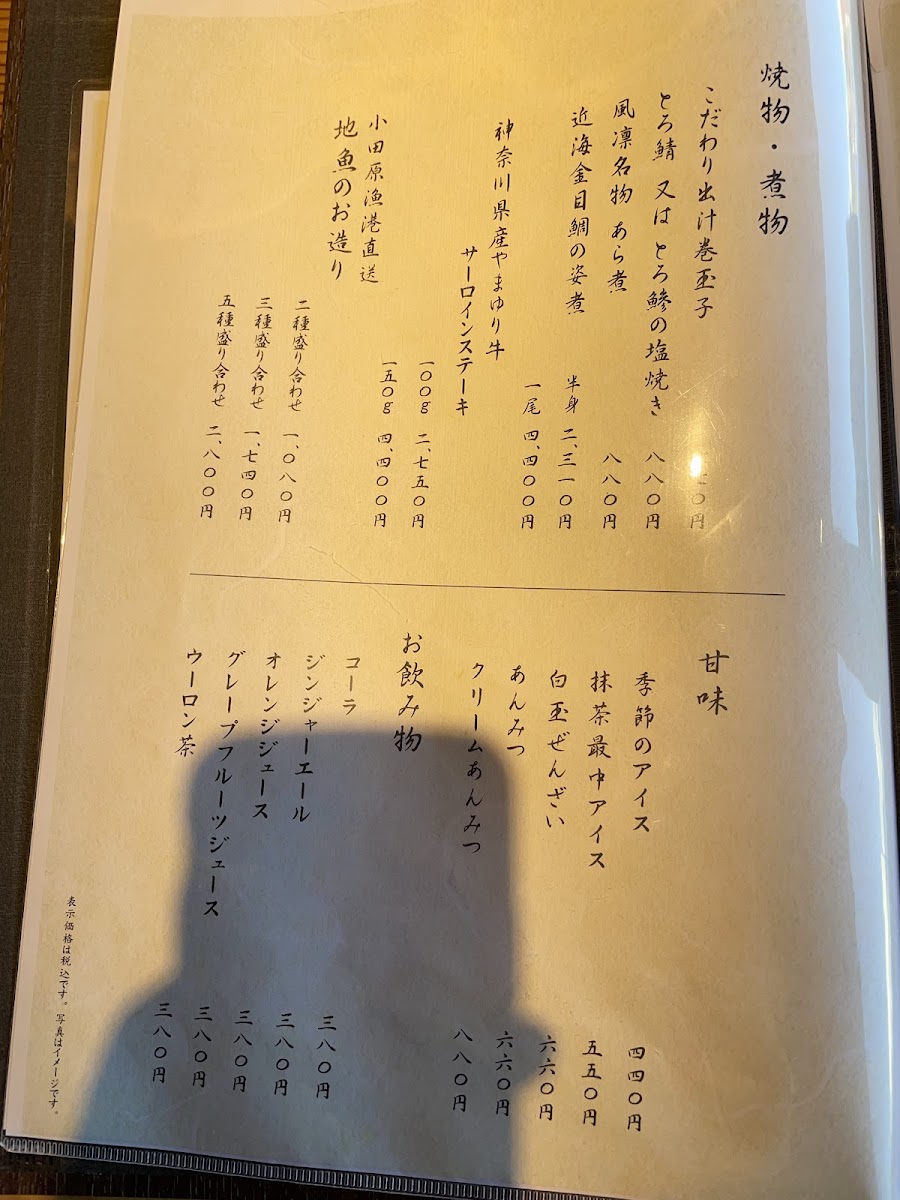 焼物・煮物
こだわり出汁巻玉子 〇円
とろ鯖 又は とろ鯵の塩焼き 八八〇円
風凛名物 あら煮 八八〇円
近海金目鯛の姿煮 半身 二、三一〇円
一尾 四、四〇〇円
神奈川県産やまゆり牛
サーロインステーキ
一〇〇g 二、七五〇円
一五〇g 四、四〇〇円
小田原漁港直送
地魚のお造り
二種盛り合わせ 一、〇八〇円
三種盛り合わせ 一、七四〇円
五種盛り合わせ 二、八〇〇円
甘味
季節のアイス 四四〇円
抹茶最中アイス 五五〇円
白玉ぜんざい 六六〇円
あんみつ 六六〇円
クリームあんみつ 八八〇円
お飲み物
コーラ 三八〇円
ジンジャーエール 三八〇円
オレンジジュース 三八〇円
グレープフルーツジュース 三八〇円
ウーロン茶 三八〇円
表示価格は税込です。写真はイメージです。